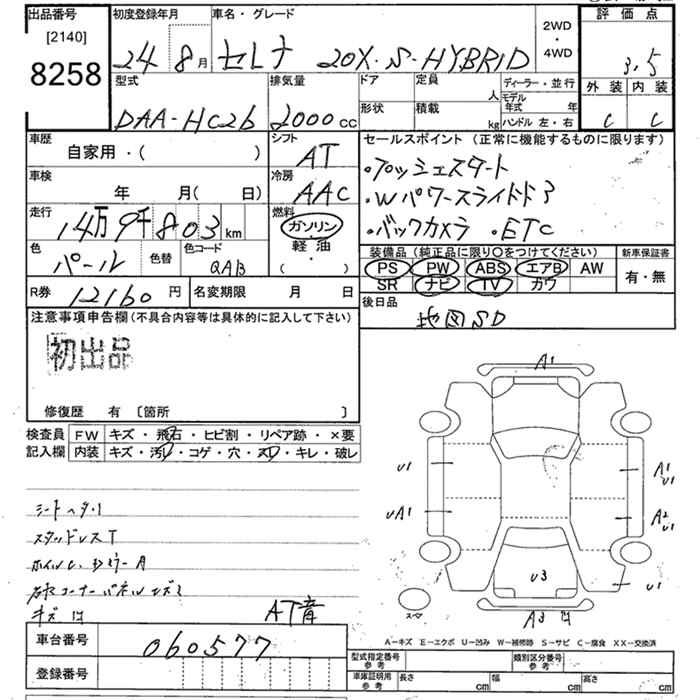 出品番号
[2140]
8258
初度登録年月
24 8月
車名・グレード
セレナ 20X・S-HYBRID
2WD
・
4WD
評価点
3.5
外装 内装
C C
型式
DAA-HC26
排気量
2000cc
ドア
形状
定員 人
積載 kg
ディーラー・並行
モデル年式 年
ハンドル 左・右
車歴
自家用・( )
シフト
AT
車検
年 月( 日)
冷房
AAC
走行
14万9千803km
燃料
ガソリン
軽油
( )
色
パール
色替
色コード
QAB
R券 12160円
名変期限 月 日
セールスポイント(正常に機能するものに限ります)
・プッシュスタート
・Wパワースライドドア
・バックカメラ ・ETC
装備品(純正品に限り〇をつけてください)
PS PW ABS エアB AW
SR ナビ TV カワ
新車保証書
有・無
後日品
地図SD
注意事項申告欄(不具合内容等は具体的に記入して下さい)
初出品
修復歴 有 〔箇所 〕
検査員
記入欄
FW キズ・飛石・ヒビ割・リペア跡・×要
内装 キズ・汚レ・コゲ・穴・スレ・キレ・破レ
シートヘタリ
スタッドレスT
キズ
AT音
A1
U1
A1
U1
UA1
A2
U1
U3
U1
A3
A-キズ E-エクボ U-凹み W-補修跡 S-サビ C-腐食 XX-交換済
車台番号
060577
登録番号
型式指定番号
参考
類別区分番号
参考
車庫証明用
参考
長さ cm
幅 cm
高さ cm